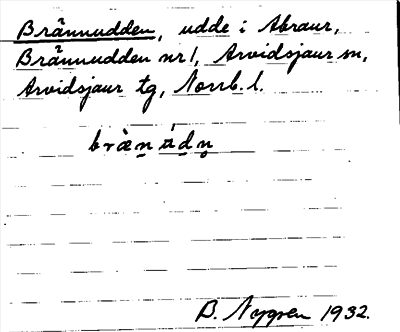 Brännudden, udde i Abraur,
Brännudden nr 1, Arvidsjaur sn,
Arvidsjaur tg, Norrb. l.
B. Nygren 1932.